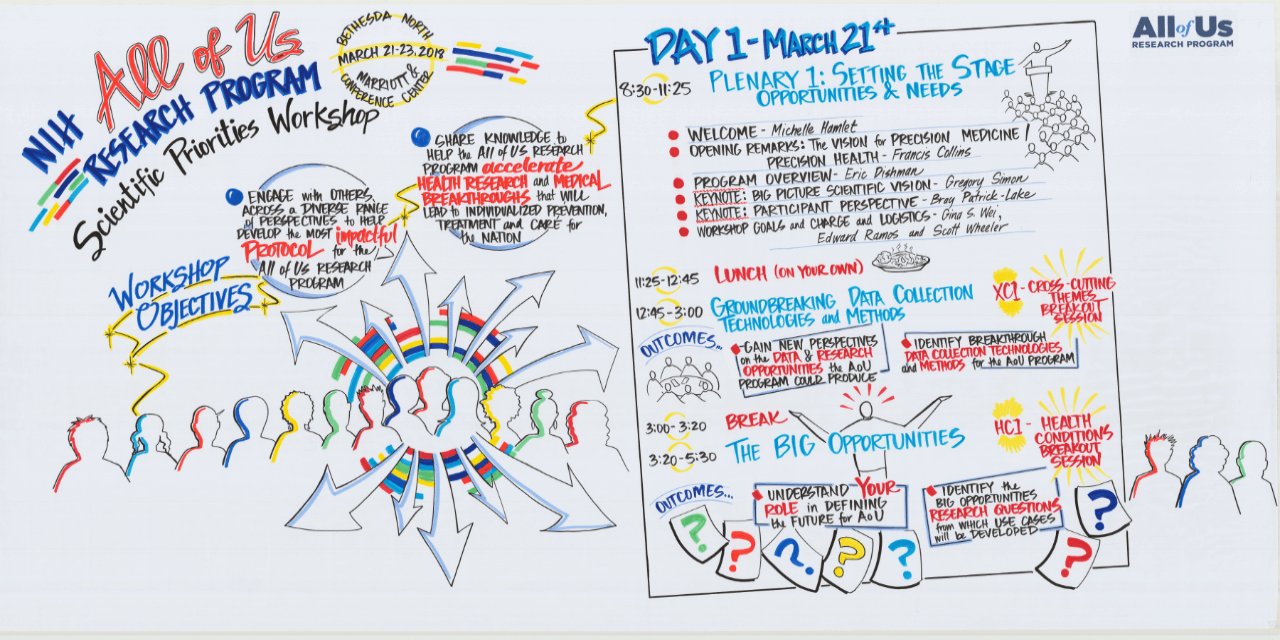 NIH
All of Us
RESEARCH PROGRAM
Scientific Priorities Workshop
BETHESDA NORTH
MARCH 21-23, 2018
MARRIOTT &
CONFERENCE CENTER
WORKSHOP
OBJECTIVES
ENGAGE with OTHERS,
ACROSS a DIVERSE RANGE
of PERSPECTIVES to HELP
DEVELOP the MOST impactful
PROTOCOL for the
All of US RESEARCH
PROGRAM
SHARE KNOWLEDGE to
HELP the All of US RESEARCH
PROGRAM accelerate
HEALTH RESEARCH and MEDICAL
BREAKTHROUGHS that WILL
LEAD to INDIVIDUALIZED PREVENTION,
TREATMENT and CARE for
the NATION
All of Us
RESEARCH PROGRAM
DAY 1 - MARCH 21st
8:30-11:25 PLENARY 1: SETTING THE STAGE
OPPORTUNITIES & NEEDS
WELCOME - Michelle Hamlet
OPENING REMARKS: The VISION for PRECISION MEDICINE /
PRECISION HEALTH - Francis Collins
PROGRAM OVERVIEW - Eric Dishman
KEYNOTE: BIG PICTURE SCIENTIFIC VISION - Gregory Simon
KEYNOTE: PARTICIPANT PERSPECTIVE - Bray Patrick-Lake
WORKSHOP GOALS and CHARGE and LOGISTICS - Gina S. Wei,
Edward Ramos and Scott Wheeler
11:25-12:45 LUNCH (ON YOUR OWN)
12:45-3:00 GROUNDBREAKING DATA COLLECTION
TECHNOLOGIES and METHODS
XC1 - CROSS-CUTTING
THEMES
BREAKOUT
SESSION
OUTCOMES...
GAIN NEW PERSPECTIVES
on the DATA & RESEARCH
OPPORTUNITIES the AoU
PROGRAM COULD PRODUCE
IDENTIFY BREAKTHROUGH
DATA COLLECTION TECHNOLOGIES
and METHODS for the AoU PROGRAM
3:00-3:20 BREAK
3:20-5:30 THE BIG OPPORTUNITIES
HC1 - HEALTH
CONDITIONS
BREAKOUT
SESSION
OUTCOMES...
UNDERSTAND YOUR
ROLE in DEFINING
the FUTURE for AoU
IDENTIFY the
BIG OPPORTUNITIES
RESEARCH QUESTIONS
from WHICH USE CASES
will be DEVELOPED
? ? ? ? ? ? ?